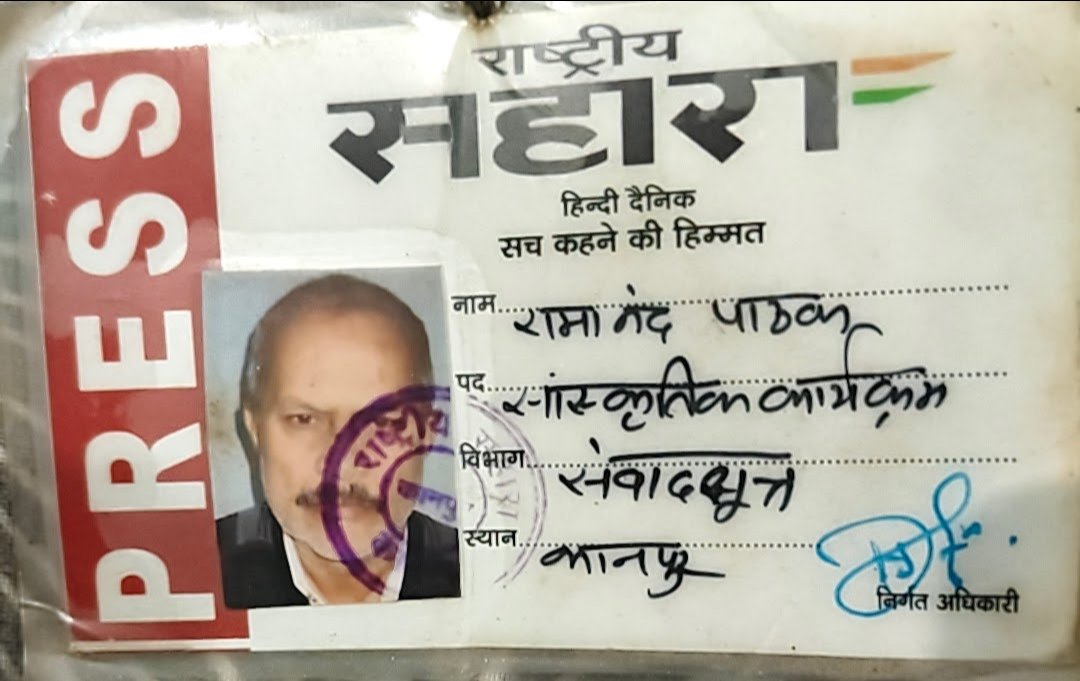 PRESS
राष्ट्रीय
सहारा
हिन्दी दैनिक
सच कहने की हिम्मत
नाम.......रामानंद पाठक
पद.......सांस्कृतिक कार्यक्रम
विभाग.......संवादसूत्र
स्थान.......कानपुर
राष्ट्रीय सहारा
निर्गत अधिकारी